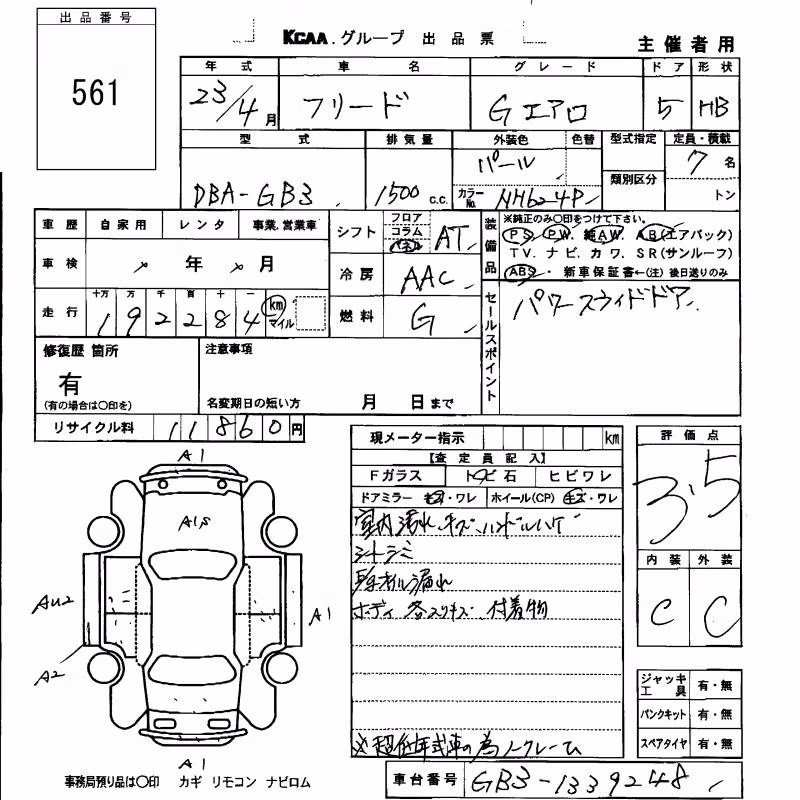 出品番号
561
KCAA.グループ 出品票
主催者用
年式 車名 グレード ドア 形状
23/4月 フリード Gエアロ 5 HB
型式 排気量 外装色 色替 型式指定 定員・積載
DBA-GB3 1500c.c. パール 7名
カラーNo. NH624P 類別区分 トン
車歴 自家用 レンタ 事業.営業車
シフト フロア コラム AT
装備品 ※純正のみ〇印をつけて下さい。
PS. PW. 純AW. AB(エアバック)
TV. ナビ. カワ. SR(サンルーフ)
ABS. 新車保証書←(注)後日送りのみ
車検 年 月
冷房 AAC
走行 十万 万 千 百 十 一
192284 km マイル
燃料 G
セールスポイント パワースライドドア
修復歴 箇所
有
(有の場合は〇印を)
注意事項
名変期日の短い方 月 日まで
リサイクル料 11860円
現メーター指示 km
【査定員記入】
Fガラス トビ石 ヒビワレ
ドアミラー キズ・ワレ ホイール(CP) キズ・ワレ
室内汚れ、キズ、ハンドルハゲ
シートシミ
オイル漏れ
ボディ 各スリキズ、付着物
※超低年式車の為ノークレーム
評価点
3.5
内装 外装
C C
A1
A1S
AU2
A1
A2
A1
ジャッキ工具 有・無
パンクキット 有・無
スペアタイヤ 有・無
事務局預り品は〇印 カギ リモコン ナビロム
車台番号 GB3-1339248